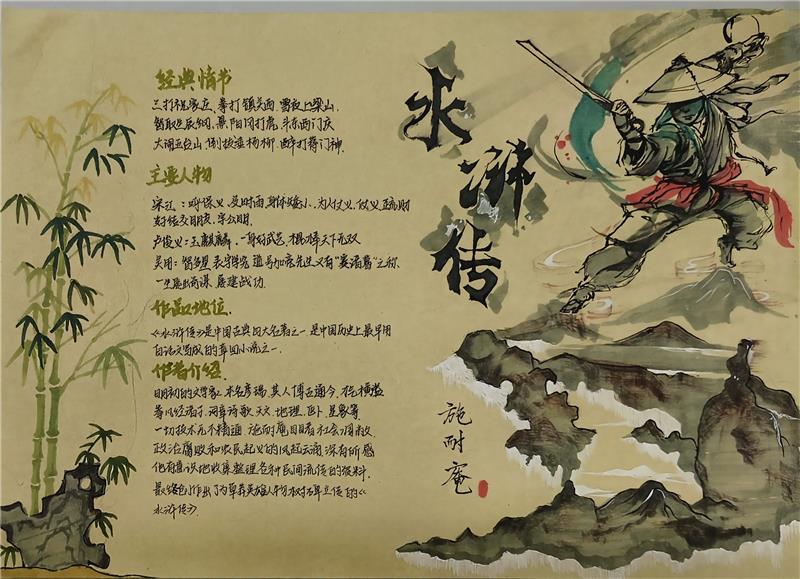 经典情节
三打祝家庄、拳打镇关西、雪夜上梁山、
智取生辰纲、景阳冈打虎、斗杀西门庆
大闹五台山、倒拔垂杨柳、醉打蒋门神
主要人物
宋江：呼保义、及时雨 身体矮小、为人仗义、仗义疏财
好结交朋友、字公明
卢俊义：玉麒麟、一身好武艺、棍棒天下无双
吴用：智多星 表字学究 道号加亮先生 又有“赛诸葛”之称、
一生屡出奇谋、屡建战功
作品地位.
《水浒传》是中国古典四大名著之一 是中国历史上最早用
白话文写成的章回小说之一.
作者介绍
明初的文学家，本名彦端，其人博古通今，
诗歌、天文、地理、医卜、星象等
一切技术无不精通 施耐庵目睹社会
政治腐败和农民起义的风起云涌 深有所感
他有意识地收集整理各种民间流传的资料
最终创作出了为草莽英雄人物树碑立传的《
水浒传》
水浒传
施耐庵